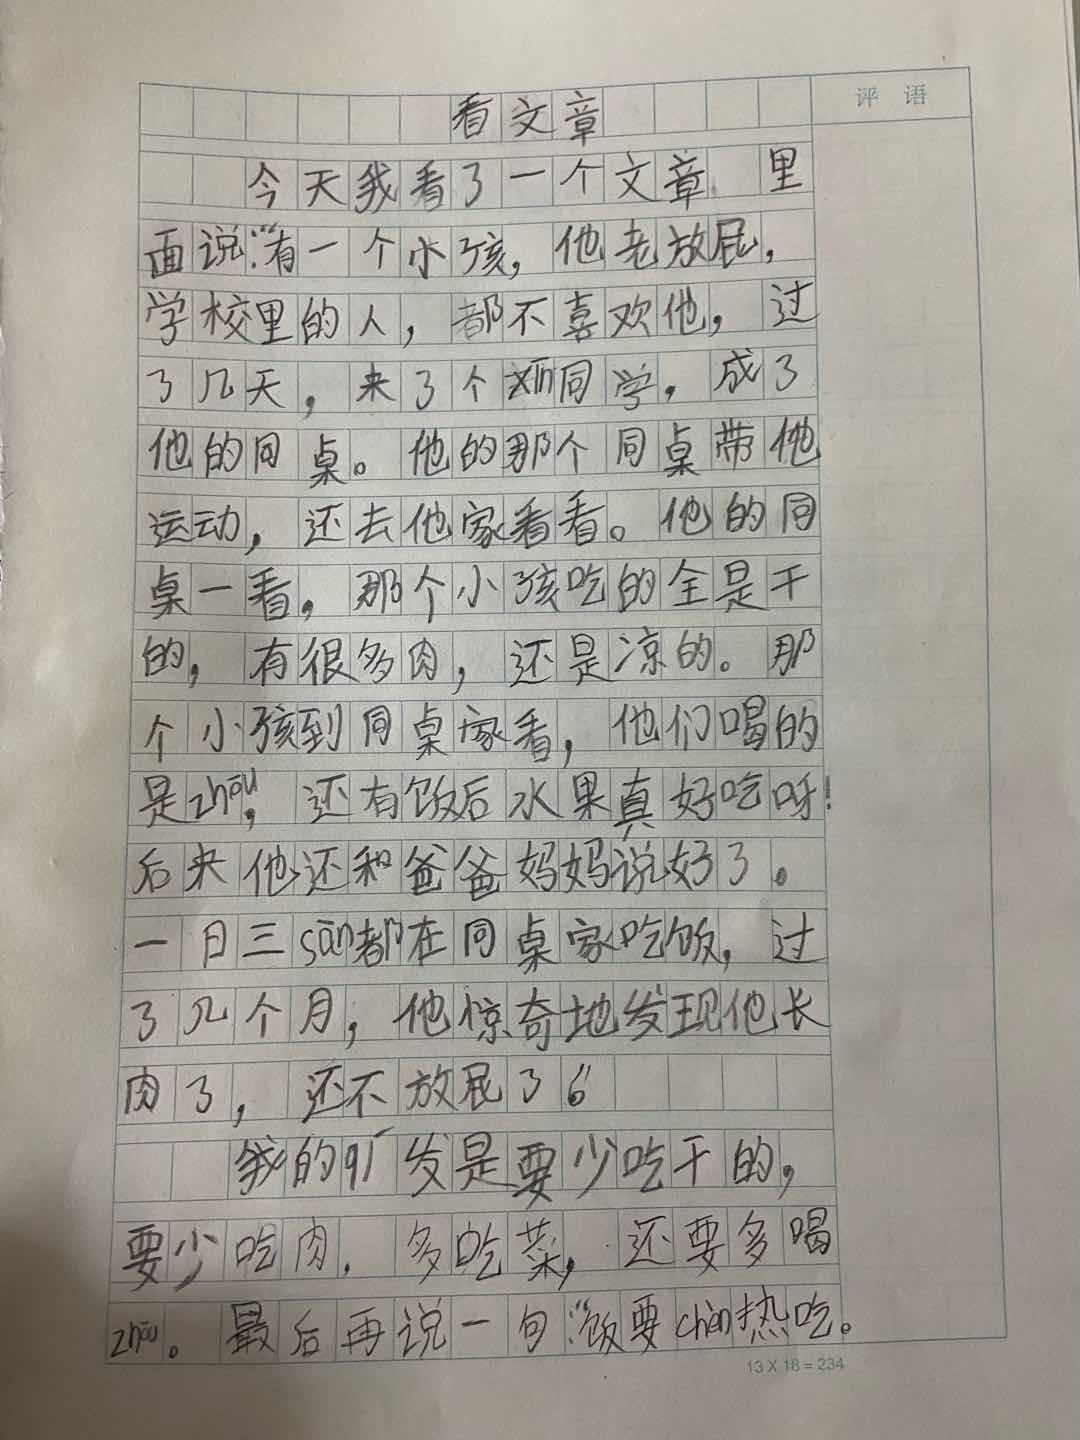 看文章
评语
今天我看了一个文章 里
面说:“有一个小孩,他老放屁,
学校里的人,都不喜欢他,过
了几天,来了个xīn同学,成了
他的同桌。他的那个同桌带他
运动,还去他家看看。他的同
桌一看,那个小孩吃的全是干
的,有很多肉,还是凉的。那
个小孩到同桌家看,他们喝的
是zhōu,还有饭后水果真好吃呀!
后来他还和爸爸妈妈说好了。
一日三sān都在同桌家吃饭,过
了几个月,他惊奇地发现他长
肉了,还不放屁了。”
我的qǐ发是要少吃干的,
要少吃肉,多吃菜,还要多喝
zhōu。最后再说一句:“饭要chèn热吃。
13×18=234